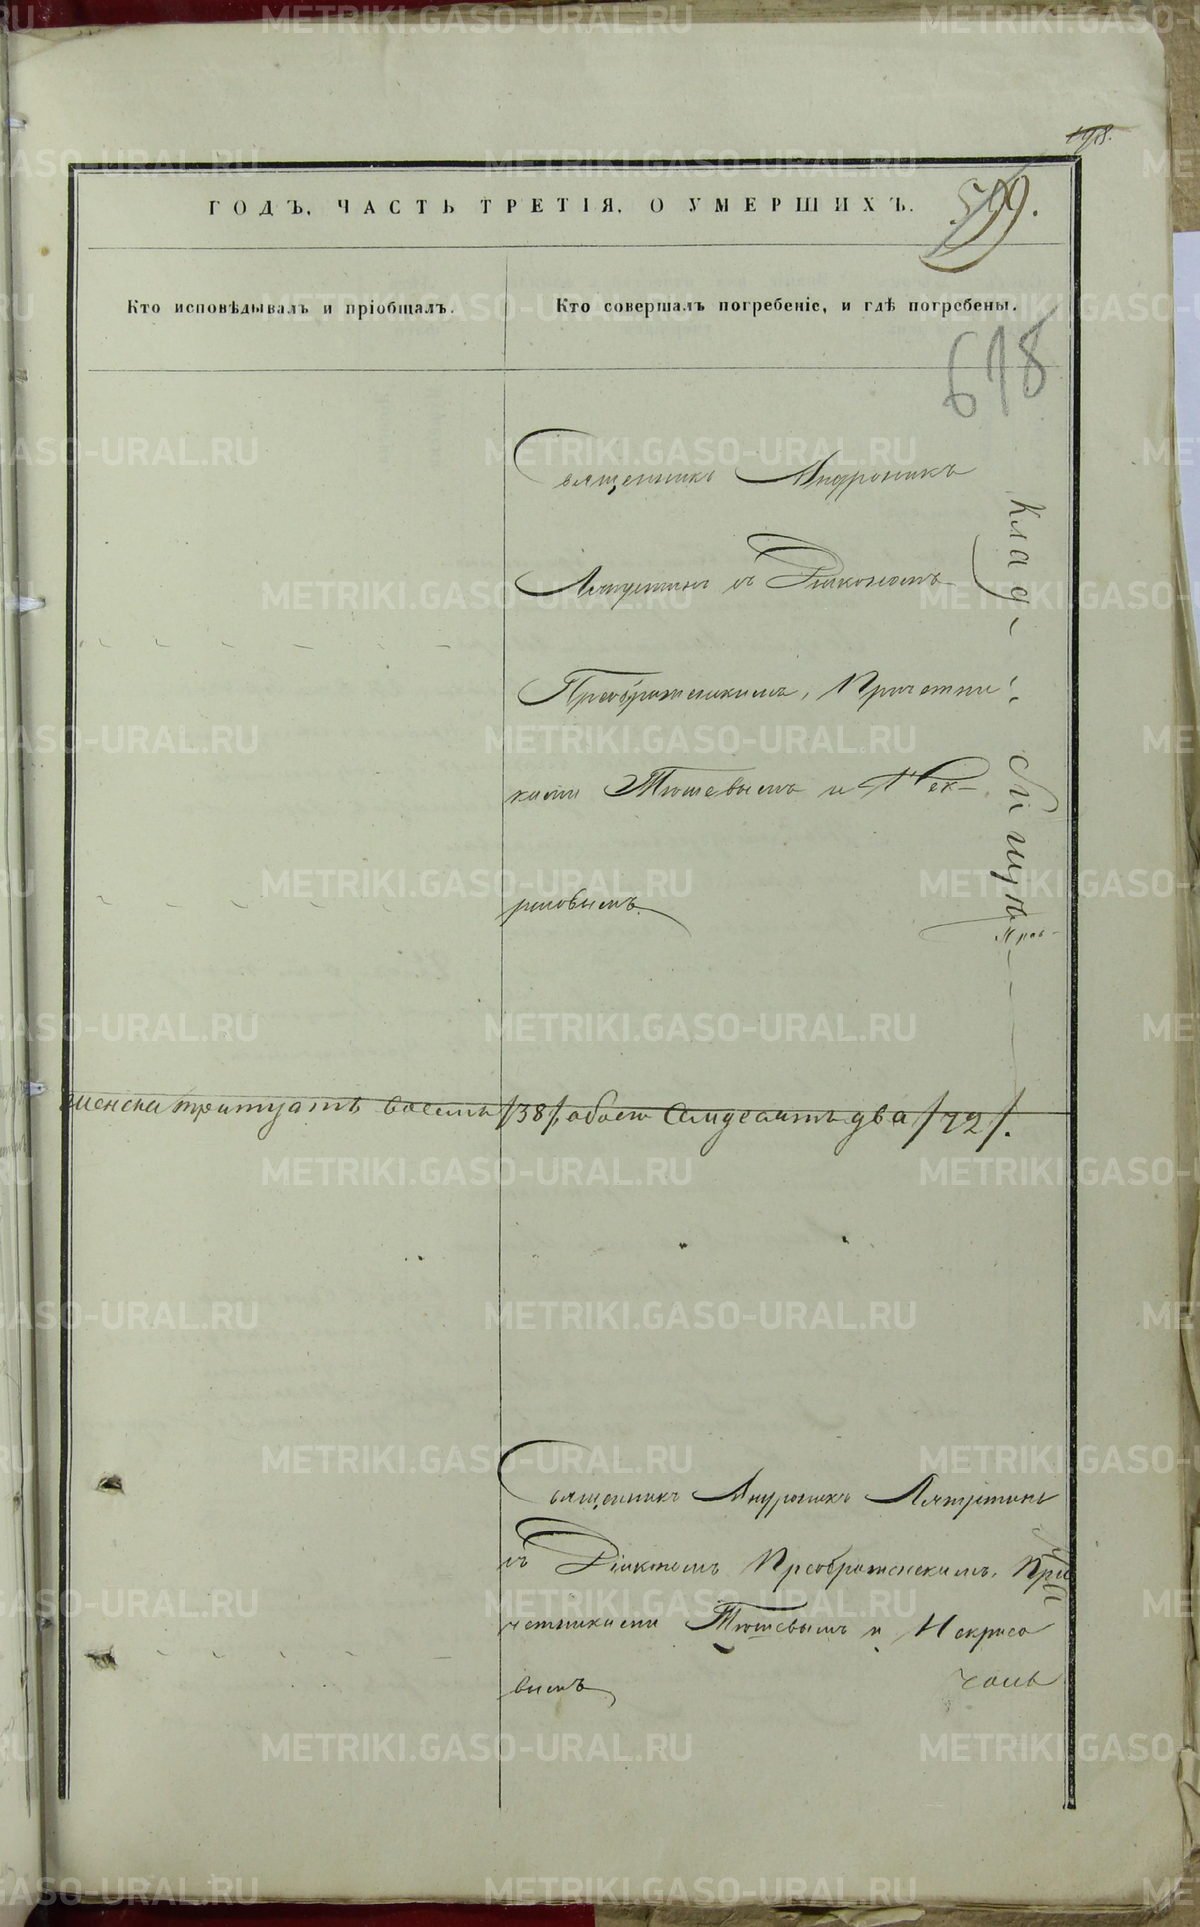 198.
ГОДЪ, ЧАСТЬ ТРЕТІЯ, О УМЕРШИХЪ.
599.
Кто исповѣдывалъ и пріобщалъ.
Кто совершалъ погребеніе, и гдѣ погребены.
618
Священникъ Андроникъ
Ляпустинъ съ Діакономъ
Преображенскимъ, Причетни
ками Тюшевымъ и Нек-
расовымъ.
Клад-
женска тритцать восемь /38/, обоего семдесятъ два /72/.
Священникъ Андроникъ Ляпустинъ
съ Діакономъ Преображенскимъ, При
четниками Тюшевымъ и Некрасо
вымъ
METRIKI.GASO-URAL.RU